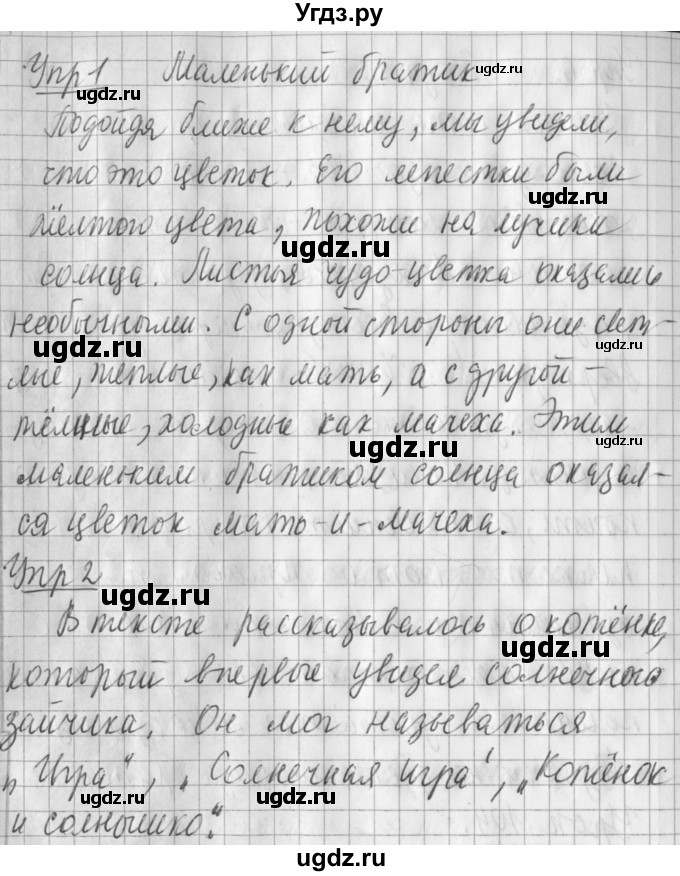 Угдз.ру
Упр 1 Маленький братик
ugdz.ru ugdz.ru
Подойдя ближе к нему, мы увидели,
что это цветок. Его лепестки были
ugdz.ru
жёлтого цвета, похожи на лучики
ugdz.ru
солнца. Листья чудо-цветка оказались
необычными. С одной стороны они свет-
ugdz.ru ugdz.ru
лые, тёплые, как мать, а с другой -
тёмные, холодные как мачеха. Этим
ugdz.ru ugdz.ru
маленьким братиком солнца оказал-
ся цветок мать-и-мачеха.
ugdz.ru
Упр 2
ugdz.ru
В тексте рассказывалось о котёнке,
ugdz.ru
который впервые увидел солнечного
зайчика. Он мог называться
ugdz.ru
„Игра“, „Солнечная игра“, „Котёнок
ugdz.ru ugdz.ru
и солнышко“.
ugdz.ru